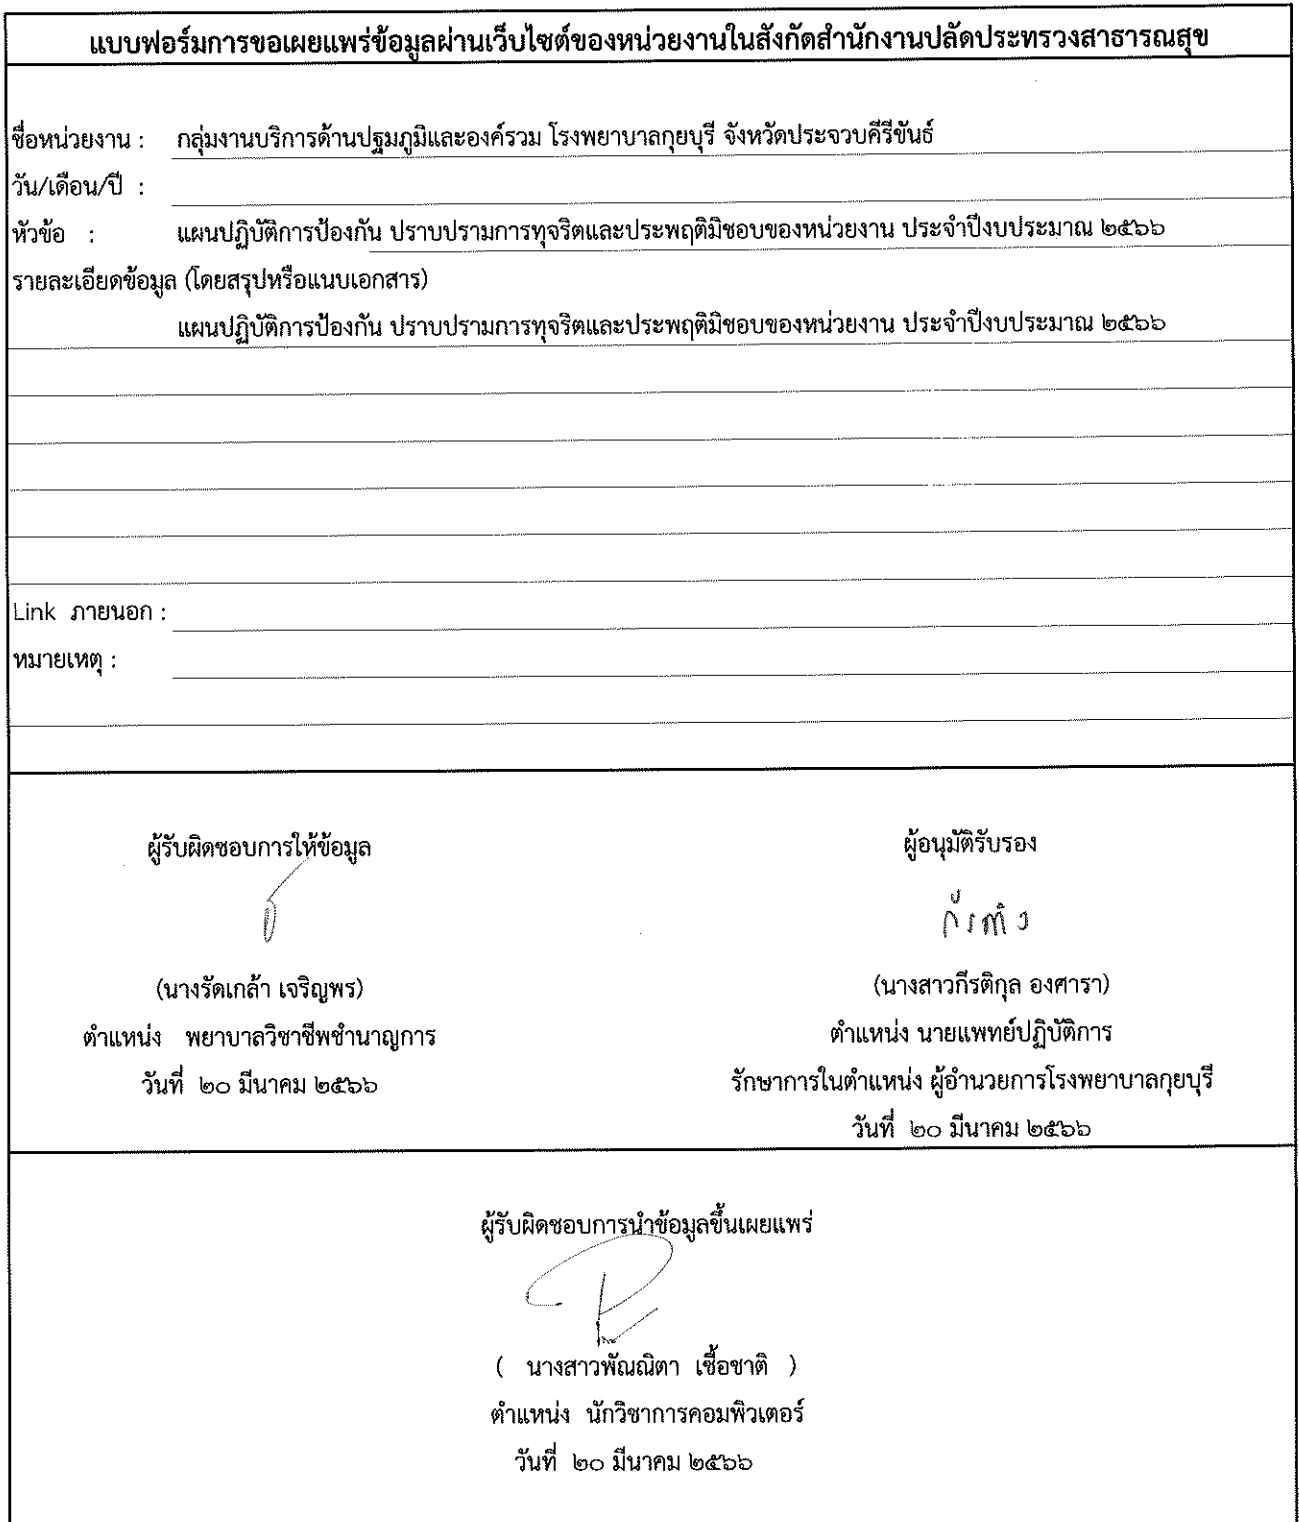 แบบฟอร์มการขอเผยแพร่ข้อมูลผ่านเว็บไซต์ของหน่วยงานในสังกัดสำนักงานปลัดประทรวงสาธารณสุข
ชื่อหน่วยงาน : กลุ่มงานบริการด้านปฐมภูมิและองค์รวม โรงพยาบาลกุยบุรี จังหวัดประจวบคีรีขันธ์
วัน/เดือน/ปี :
หัวข้อ : แผนปฏิบัติการป้องกัน ปราบปรามการทุจริตและประพฤติมิชอบของหน่วยงาน ประจำปีงบประมาณ ๒๕๖๖
รายละเอียดข้อมูล (โดยสรุปหรือแนบเอกสาร)
แผนปฏิบัติการป้องกัน ปราบปรามการทุจริตและประพฤติมิชอบของหน่วยงาน ประจำปีงบประมาณ ๒๕๖๖
Link ภายนอก :
หมายเหตุ :
ผู้รับผิดชอบการให้ข้อมูล
(นางรัดเกล้า เจริญพร)
ตำแหน่ง พยาบาลวิชาชีพชำนาญการ
วันที่ ๒๐ มีนาคม ๒๕๖๖
ผู้อนุมัติรับรอง
(นางสาวกีรติกุล องศารา)
ตำแหน่ง นายแพทย์ปฏิบัติการ
รักษาการในตำแหน่ง ผู้อำนวยการโรงพยาบาลกุยบุรี
วันที่ ๒๐ มีนาคม ๒๕๖๖
ผู้รับผิดชอบการนำข้อมูลขึ้นเผยแพร่
( นางสาวพัณณิตา เชื้อชาติ )
ตำแหน่ง นักวิชาการคอมพิวเตอร์
วันที่ ๒๐ มีนาคม ๒๕๖๖